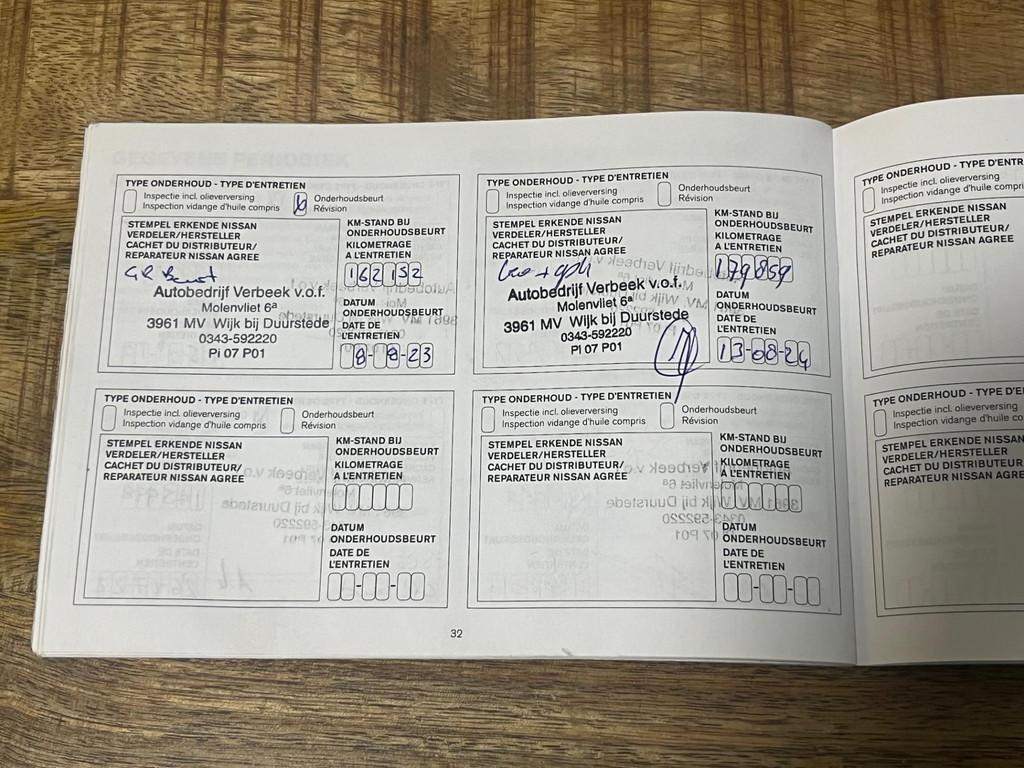 TYPE ONDERHOUD - TYPE D'ENTRETIEN
Inspectie incl. olieverversing
Inspection vidange d'huile compris
Onderhoudsbeurt
Révision
STEMPEL ERKENDE NISSAN
VERDELER/HERSTELLER
CACHET DU DISTRIBUTEUR/
REPARATEUR NISSAN AGREE
GR Beurt
Autobedrijf Verbeek v.o.f.
Molenvliet 6a
3961 MV Wijk bij Duurstede
0343-592220
Pi 07 P01
KM-STAND BIJ
ONDERHOUDSBEURT
KILOMETRAGE
A L'ENTRETIEN
162152
DATUM
ONDERHOUDSBEURT
DATE DE
L'ENTRETIEN
8-8-23
TYPE ONDERHOUD - TYPE D'ENTRETIEN
Inspectie incl. olieverversing
Inspection vidange d'huile compris
Onderhoudsbeurt
Révision
STEMPEL ERKENDE NISSAN
VERDELER/HERSTELLER
CACHET DU DISTRIBUTEUR/
REPARATEUR NISSAN AGREE
Autobedrijf Verbeek v.o.f.
Molenvliet 6a
3961 MV Wijk bij Duurstede
0343-592220
Pi 07 P01
KM-STAND BIJ
ONDERHOUDSBEURT
KILOMETRAGE
A L'ENTRETIEN
179859
DATUM
ONDERHOUDSBEURT
DATE DE
L'ENTRETIEN
13-08-24
TYPE ONDERHOUD - TYPE D'ENTR
Inspectie incl. olieverversing
Inspection vidange d'huile compris
STEMPEL ERKENDE NISSAN
VERDELER/HERSTELLER
CACHET DU DISTRIBUTEUR/
REPARATEUR NISSAN AGREE
TYPE ONDERHOUD - TYPE D'ENTRETIEN
Inspectie incl. olieverversing
Inspection vidange d'huile compris
Onderhoudsbeurt
Révision
STEMPEL ERKENDE NISSAN
VERDELER/HERSTELLER
CACHET DU DISTRIBUTEUR/
REPARATEUR NISSAN AGREE
KM-STAND BIJ
ONDERHOUDSBEURT
KILOMETRAGE
A L'ENTRETIEN
DATUM
ONDERHOUDSBEURT
DATE DE
L'ENTRETIEN
TYPE ONDERHOUD - TYPE D'ENTRETIEN
Inspectie incl. olieverversing
Inspection vidange d'huile compris
Onderhoudsbeurt
Révision
STEMPEL ERKENDE NISSAN
VERDELER/HERSTELLER
CACHET DU DISTRIBUTEUR/
REPARATEUR NISSAN AGREE
KM-STAND BIJ
ONDERHOUDSBEURT
KILOMETRAGE
A L'ENTRETIEN
DATUM
ONDERHOUDSBEURT
DATE DE
L'ENTRETIEN
TYPE ONDERHOUD - TYPE D'E
Inspectie incl. olieverversing
Inspection vidange d'huile compris
STEMPEL ERKENDE NISSAN
VERDELER/HERSTELLER
CACHET DU DISTRIBUTEUR/
REPARATEUR NISSAN AGREE
32